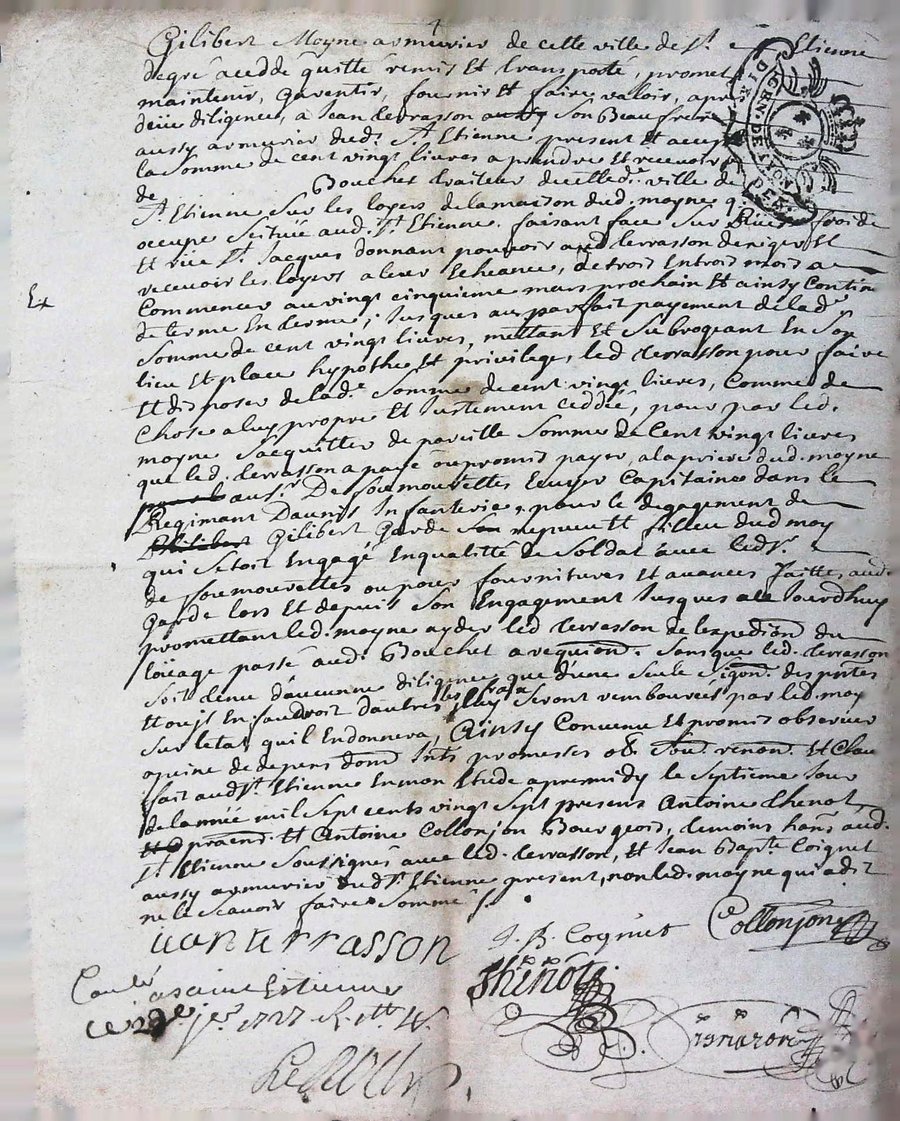 Gilibert Moyne armurier de cette ville de St. Etienne
degré a cedde quitté remis et transposté, promet
maintenir, garentir, fournir et faire valoir, apre
deüe diligence, a Jean terrasson aussy son Beaufrere
aussy armurier dudt. St Etienne present et accep
la somme de cent vingt livres a prendre et recevoir
de Bouchet traiteur decetted. ville de
St. Etienne sur les loyers dela maison dud. moyne q.
occupe scituée aud. St. Etienne. faisant face sur Rüe froide
et rüe St. Jacques donnant pouvoir aud. terrasson dexiger et
recevoir les loyers a leur Echeance, de trois en trois mois a
Commencer au vingt cinquieme mars prochain et ainsy Contin
de terme En terme, jusques au parfait payement delad.
somme de cent vingt livres, mettant et subrogeant En son
lieu et place hypotheq et privilege, led. terrasson pour faire
et disposer delade. somme de cent vingt livres, Comme de
chose a luy propre et justement ceddée, pour par led.
moyne sacquitter de pareille somme de Cent vingt livres
que led. terrasson a payé ou promis payer, a la priere dud. moyne
au sr. De foumouvelles Ecuyer Capitaine dans le
Regimant Daunis Infanterie, pour le degagement de
Gilibert Garde nepveu et filleu dud moy
qui setoit Engagé En qualitté de soldat avec ledsr.
de foumouvelles ou pour fournitures et avances faittes aud.
Garde lors et depuis son Engagement Jusques a ce Jourdhuy
promettant led. moyne ayder led terrasson de lexpedion du
loüage passé aud. Bouchet a requion. sans que led. terrasson
soit tenu d'aucunne diligence que d'une seule sigon. des portes
et ou Il En faudroit dautres Luy seront rembourcés par led. moy
sur letat quil Endonnera, Ainsy Convenu et promis observer
a peine de depens dom Ints promesses ob. renon. et Clau
fait audt. St. Etienne en mon Etude apres midy le septieme Jour
de lannée mil sept cents vingt sept presens Antoine thenot
praen. et Antoine Collonjon Bourgeois, temoins hans aud.
St Etienne soussignés avec led. terrasson, et Jean Bapte. Coignet
aussy armurier dudt. St. Etienne present, non led. moyne qui a dit
ne le scavoir faire sommé
Ex
GEN. DE LYON
DIX
DEN
ian terrasson
J. B. Cognet
Collonjon
thenot
Conlé
a saint Estienne
ce 29e Jer 1727